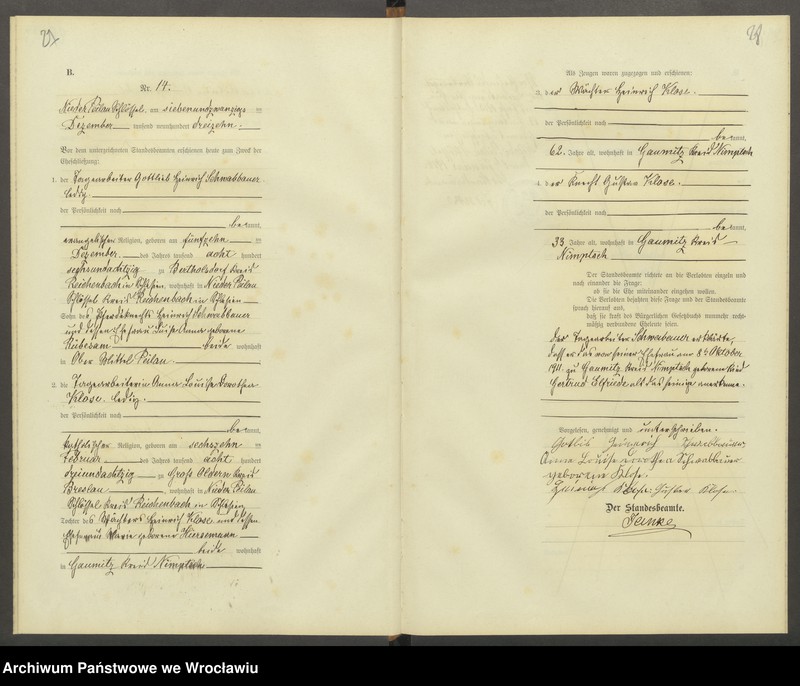 B.
Nr. 14.
Nieder Peilau Schlössel, am siebenundzwanzigsten
Dezember tausend neunhundert dreizehn.
Vor dem unterzeichneten Standesbeamten erschienen heute zum Zweck der
Eheschließung:
1. der Tagearbeiter Gottlieb Heinrich Schwabbauer
ledig.
der Persönlichkeit nach
be kannt,
evangelischer Religion, geboren am fünfzehn ten
Dezember des Jahres tausend acht hundert
sechsundachtzig zu Bertholsdorf Kreis
Reichenbach in Schlesien, wohnhaft in Nieder Peilau
Schlössel Kreis Reichenbach in Schlesien
Sohn des Pferdeknechts Heinrich Schwabbauer
und dessen Ehefrau Luise Anna geborene
beide wohnhaft
in Ober Mittel Peilau
2. die Tagearbeiterin Anna Louise Dorothea
Klose. ledig.
der Persönlichkeit nach
be kannt,
katholischer Religion, geboren am sechszehn ten
Februar des Jahres tausend acht hundert
dreiundachtzig zu Groß Oldern Kreis
Breslau, wohnhaft in Nieder Peilau
Schlössel Kreis Reichenbach in Schlesien
Tochter des Wächters Heinrich Klose und dessen
Ehefrau Maria geborene
beide wohnhaft
in Gaumitz Kreis Nimptsch
Als Zeugen waren zugezogen und erschienen:
3. der Wächter Heinrich Klose.
der Persönlichkeit nach
be kannt,
62 Jahre alt, wohnhaft in Gaumitz Kreis Nimptsch
4. der Knecht Gustav Klose.
der Persönlichkeit nach
be kannt,
33 Jahre alt, wohnhaft in Gaumitz Kreis
Nimptsch
Der Standesbeamte richtete an die Verlobten einzeln und
nach einander die Frage:
ob sie die Ehe miteinander eingehen wollen.
Die Verlobten bejahten diese Frage und der Standesbeamte
sprach hierauf aus,
daß sie kraft des Bürgerlichen Gesetzbuchs nunmehr recht-
mäßig verbundene Eheleute seien.
Der Tagearbeiter Schwabbauer erklärte,
dass er das von seiner Ehefrau am 8ten Oktober
1911 zu Gaumitz Kreis Nimptsch geborene Kind
Gertrud Elfriede als das seinige anerkenne.
Vorgelesen, genehmigt und unterschrieben.
Gotlib Heinrich Schwabbauer
Anna Louise Dorothea Schwabbauer
geborene Klose.
Heinrich Klose. Gustav Klose
Der Standesbeamte.
Archiwum Państwowe we Wrocławiu